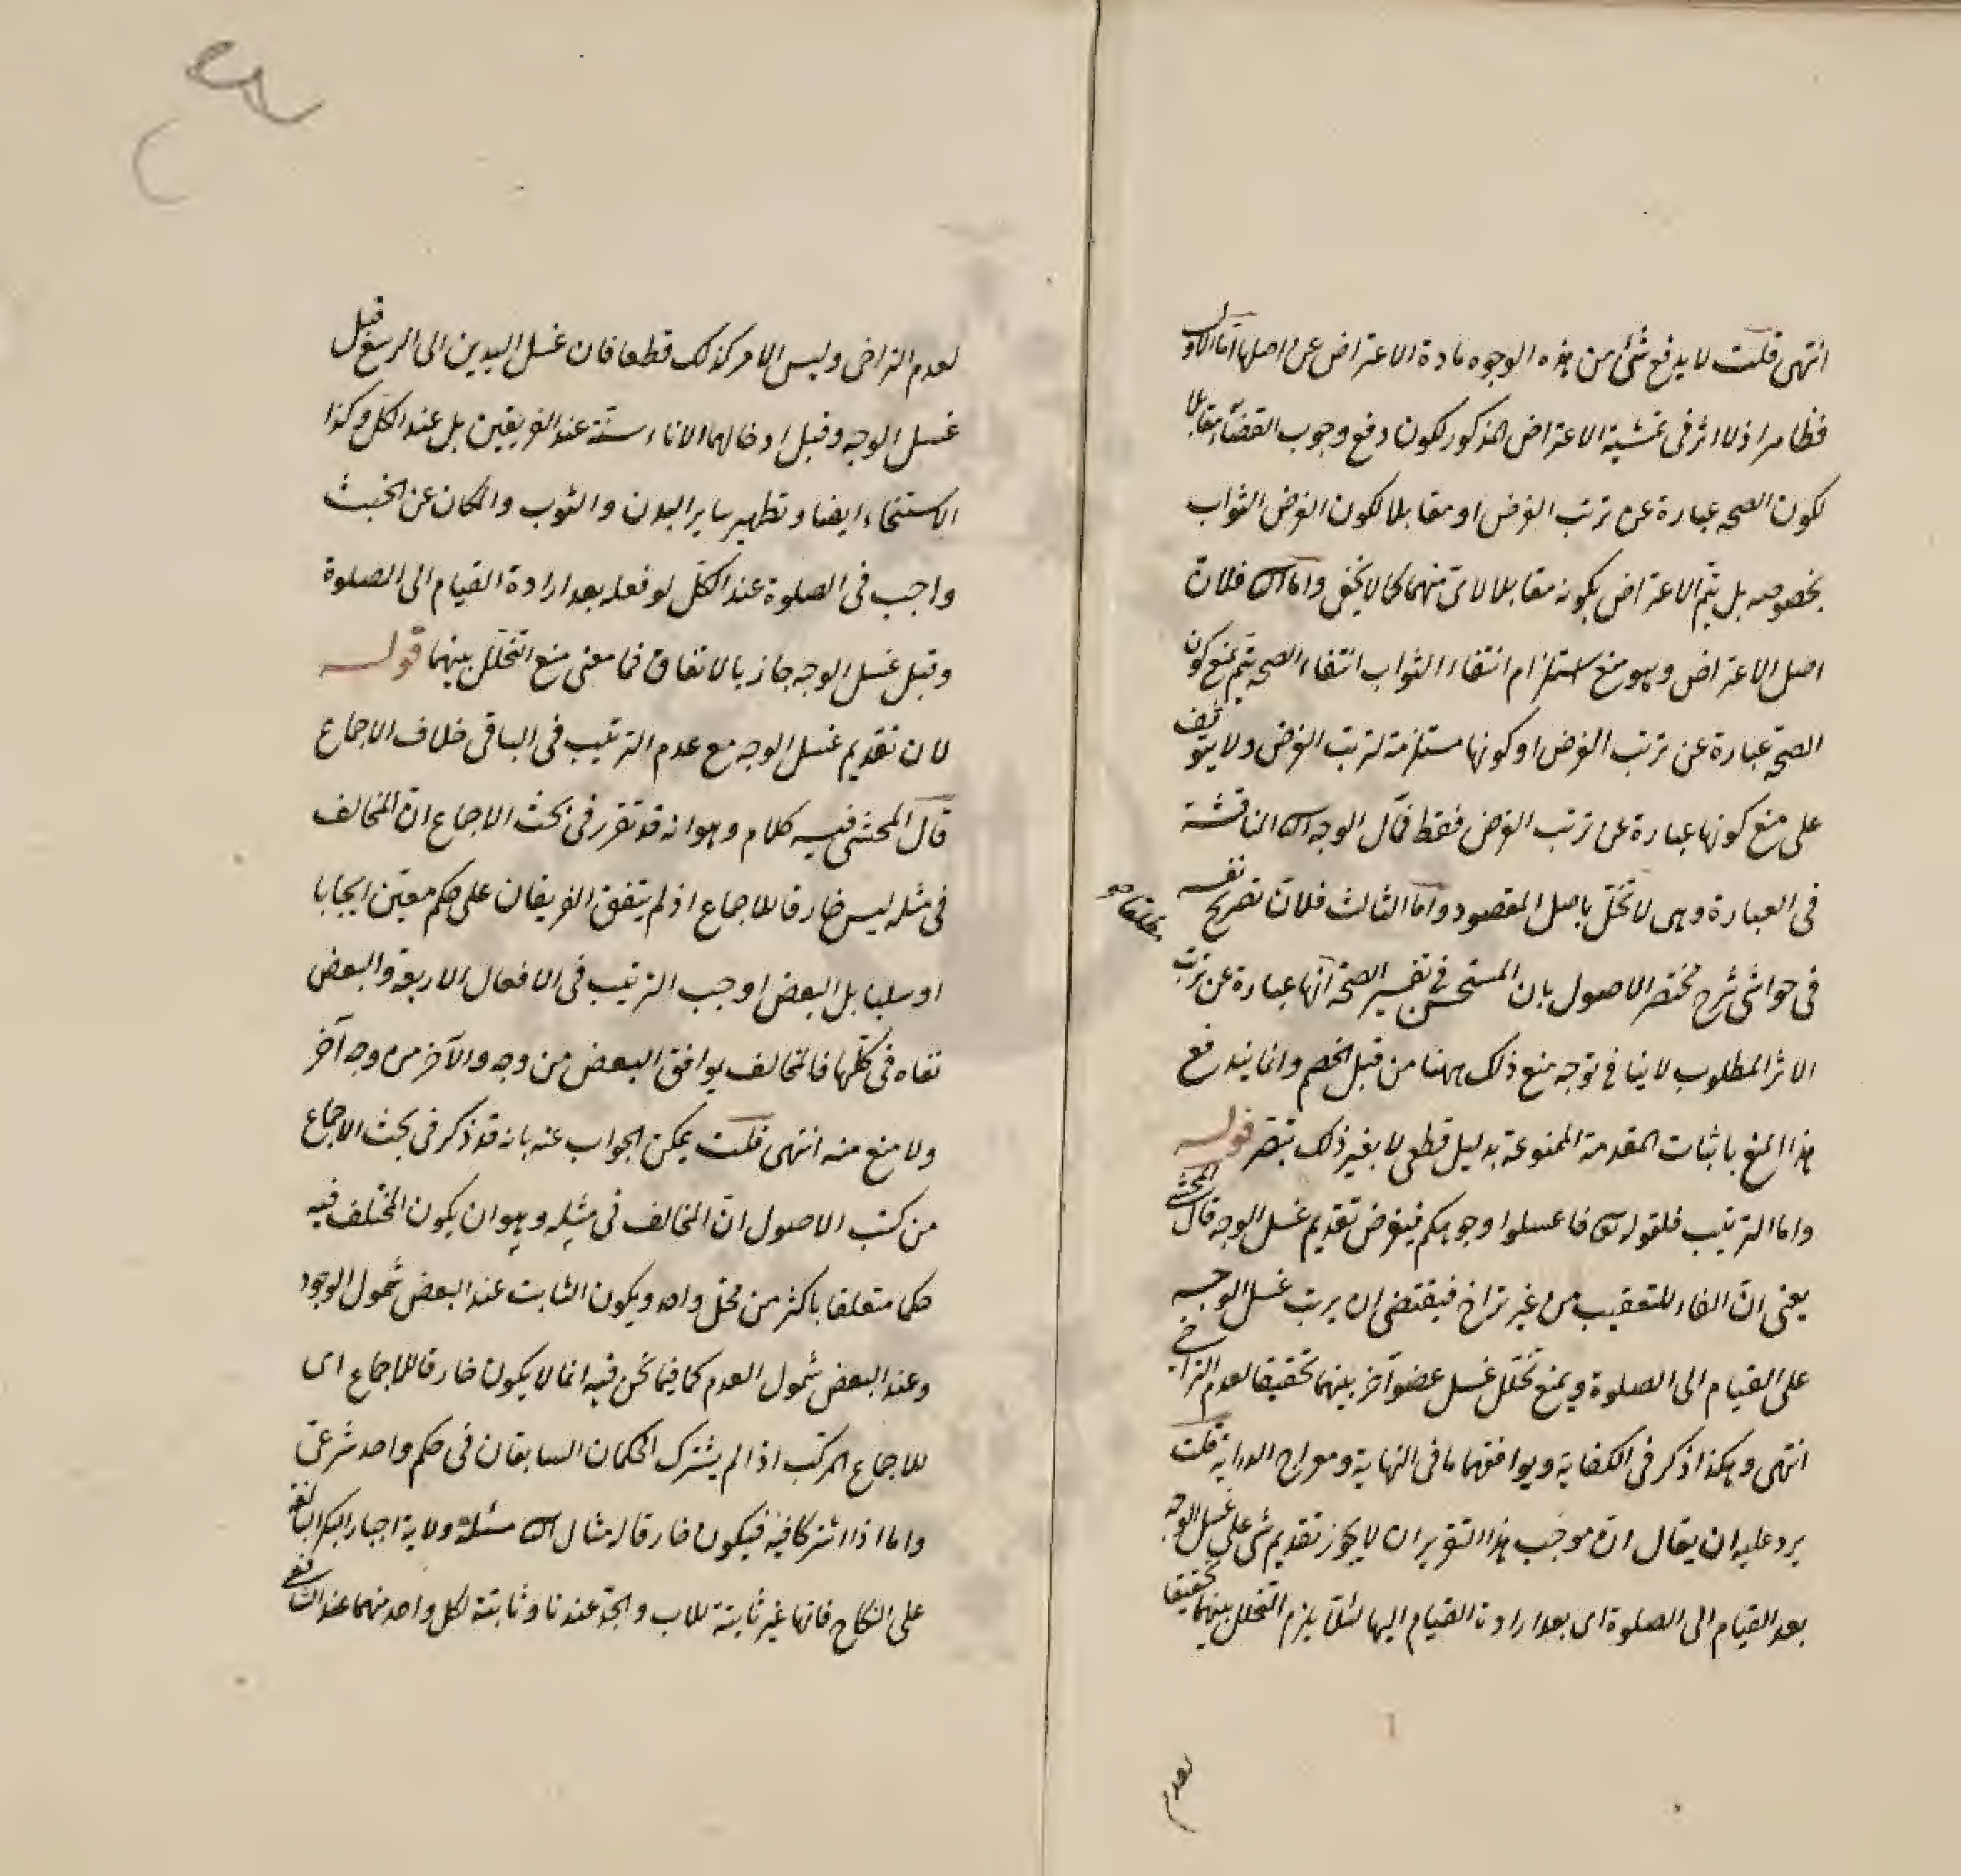 انتهى قلت لا يدفع شئ من هذه الوجوه مادة الاعتراض عن اصلها اما الاول
فظاهر اذ لا اثر فى تمشية الاعتراض المذكور لكون دفع وجوب القضاء مقابلا
لكون الصحة عبارة عن ترتب الغرض او مقابلا لكون الغرض الثواب
بخصوصه بل يتم الاعتراض بكونه مقابلا لاى منهما كما لا يخفى واما الثانى فلان
اصل الاعتراض وهو منع استلزام انتفاء الثواب انتفاء الصحة يتم بمنع كون
الصحة عبارة عن ترتب الغرض او كونها مستلزمة لترتب الغرض ولا يتوقف
على منع كونها عبارة عن ترتب الغرض فقط فمآل الوجه الثانى المناقشة
فى العبارة وهى لا تخل باصل المقصود واما الثالث فلان تصريح نفسه
فى حواشى شرح مختصر الاصول بان المستحسن فى تفسير الصحة انها عبارة عن ترتب
الاثر المطلوب لا ينافى توجه منع ذلك ههنا من قبل الخصم وانما يندفع
هذا المنع باثبات المقدمة الممنوعة بدليل قطعى لا بغير ذلك تبصر قوله
واما الترتيب فلقوله تعالى فاغسلوا وجوهكم فيفرض تقديم غسل الوجه قال المحشى
يعنى ان الفاء للتعقيب من غير تراخ فيقتضى ان يرتب غسل الوجه
على القيام الى الصلوة ويمنع تخلل غسل عضو آخر بينهما تحقيقا لعدم التراخى
انتهى وهكذا ذكر فى الكفاية ويوافقهما ما فى النهاية ومعراج الدراية قلت
يرد عليه ان يقال ان موجب هذا التقرير ان لا يجوز تقديم شئ على غسل الوجه
بعد القيام الى الصلوة اى بعد ارادة القيام اليها لئلا يلزم التخلل بينهما تحقيقا
لعدم
لعدم التراخى وليس الامر كذلك قطعا فان غسل اليدين الى الرسغ قبل
غسل الوجه وقبل ادخالهما الاناء سنة عند الفريقين بل عند الكل وكذا
الاستنجاء ايضا وتطهير سائر البدن والثوب والمكان عن الخبث
واجب فى الصلوة عند الكل لو فعله بعد ارادة القيام الى الصلوة
وقبل غسل الوجه جاز بالاتفاق فما معنى منع التخلل بينهما قوله
لان تقديم غسل الوجه مع عدم الترتيب فى الباقى خلاف الاجماع
قال المحشى فيه كلام وهو انه قد تقرر فى بحث الاجماع ان المخالف
فى مثله ليس خارقا للاجماع اذ لم يتفق الفريقان على حكم معين ايجابا
او سلبا بل البعض اوجب الترتيب فى الافعال الاربعة والبعض
نفاه فى كلها فالمخالف يوافق البعض من وجه والآخر من وجه آخر
ولا منع منه انتهى قلت يمكن الجواب عنه بانه قد ذكر فى بحث الاجماع
من كتب الاصول ان المخالف فى مثله وهو ان يكون المختلف فيه
حكما متعلقا باكثر من محل واحد ويكون الثابت عند البعض شمول الوجود
وعند البعض شمول العدم كما فيما نحن فيه انما لا يكون خارقا للاجماع اى
للاجماع المركب اذا لم يشترك الحكمان السابقان فى حكم واحد شرعى
واما اذا اشتركا فيه فيكون خارقا له مثال الثانى مسئلة ولاية اجبار البكر البالغة
على النكاح فانها غير ثابتة للاب والجد عندنا وثابتة لكل واحد منهما عند الشافعى